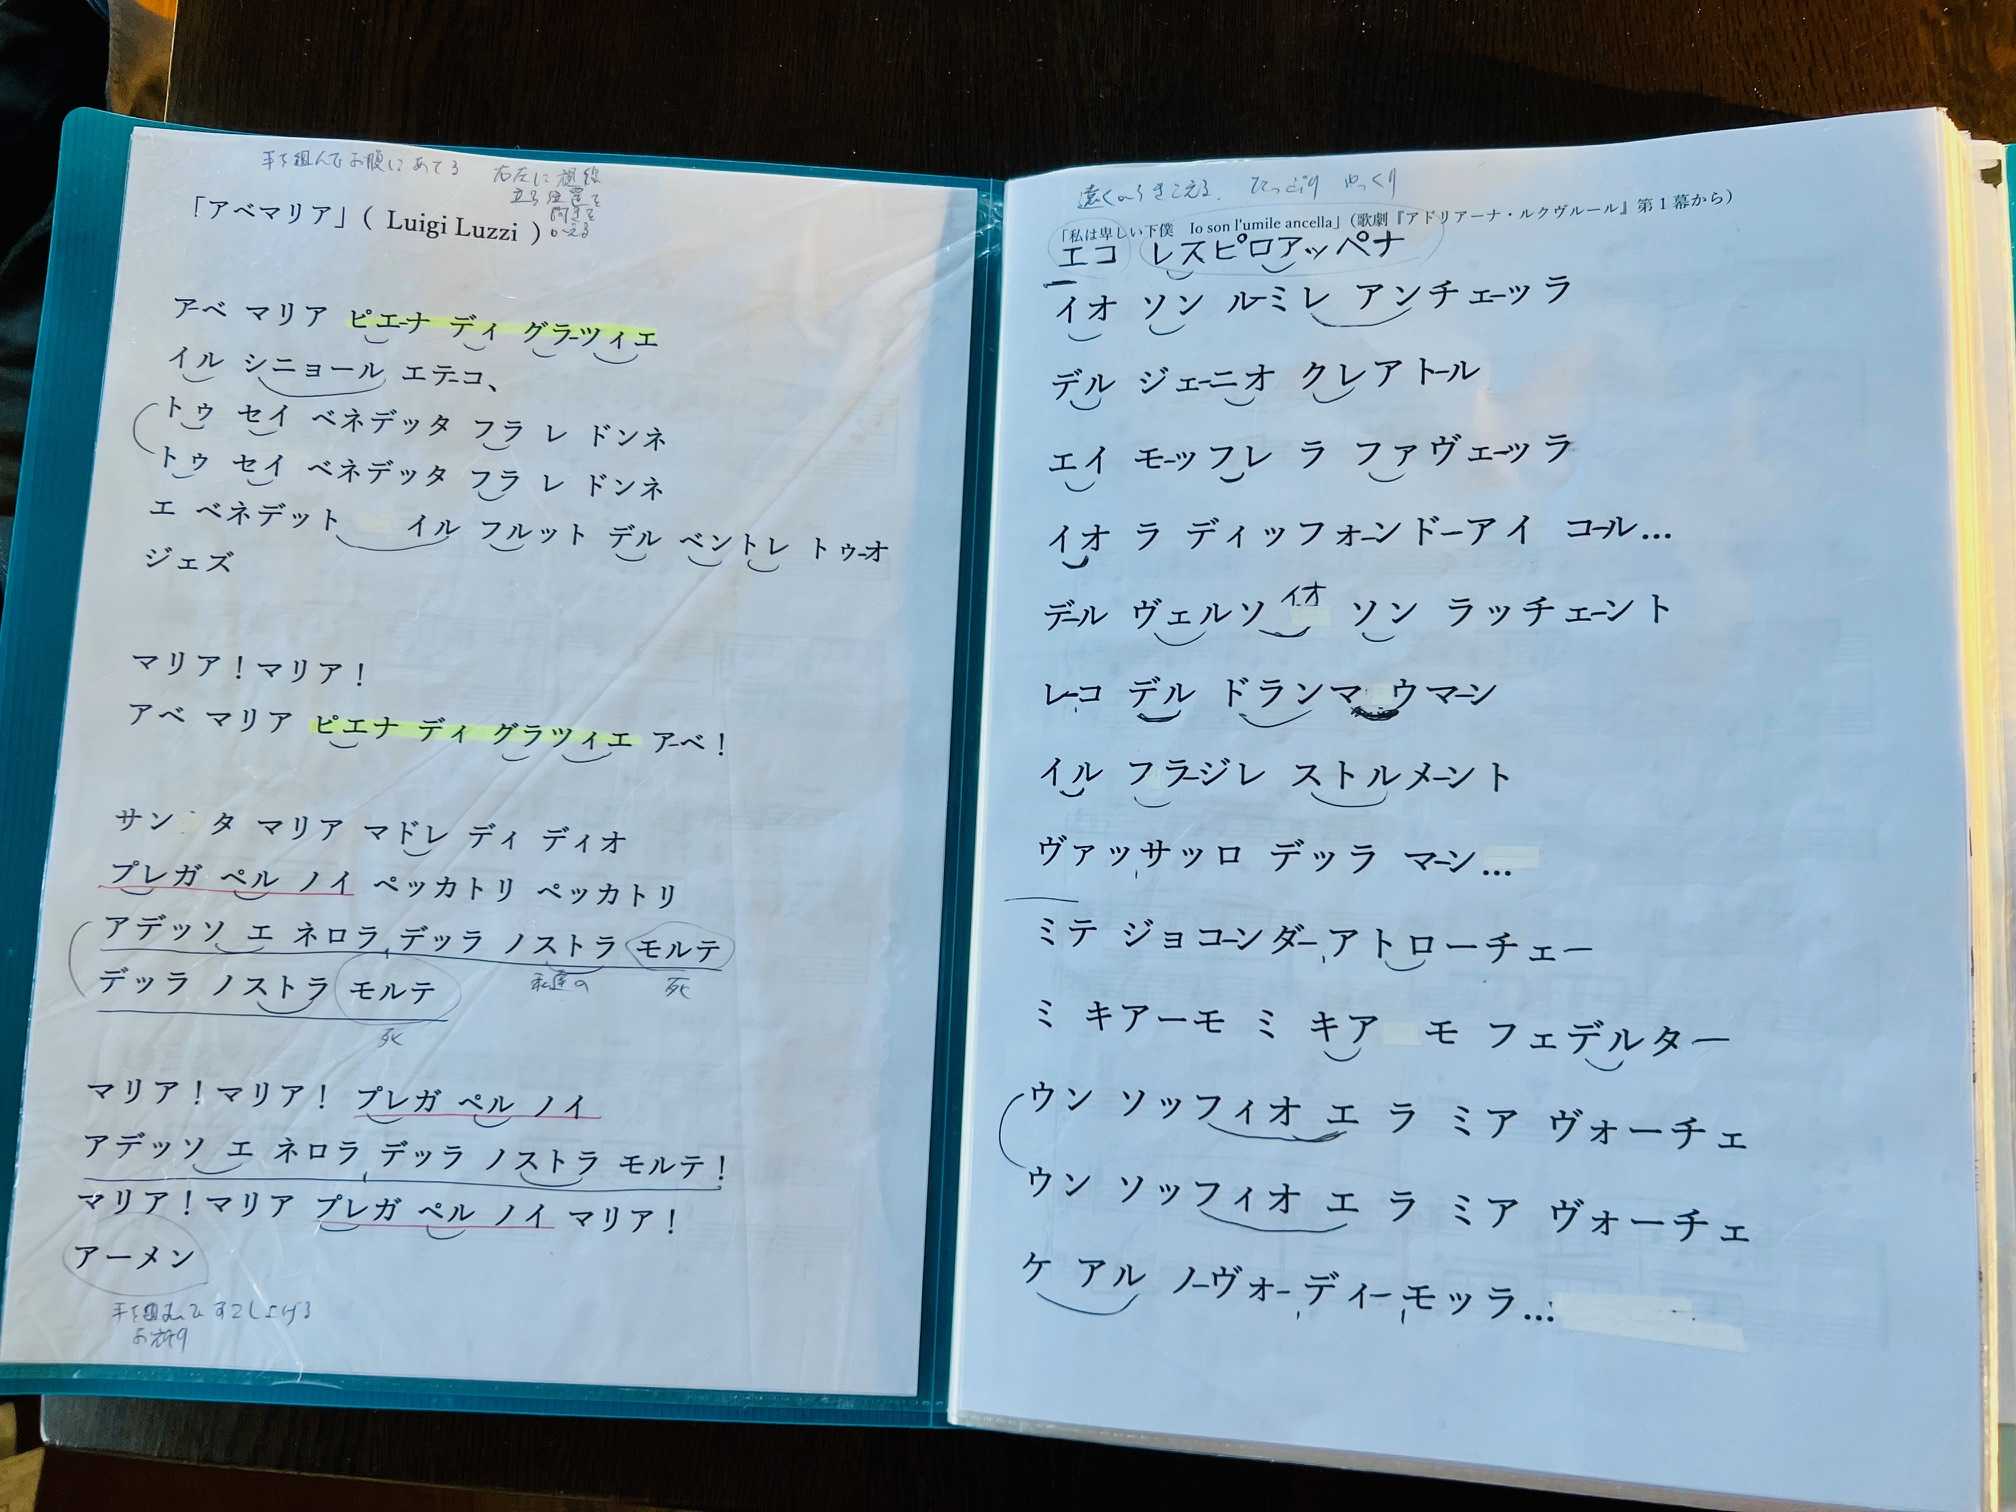 手を組んでお腹にあてる
右左に視線
立ち位置を
「アベマリア」( Luigi Luzzi )
アーベ マリア ピエーナ ディ グラーツィエ
イル シニョール エテーコ、
トゥ セイ ベネデッタ フラ レ ドンネ
トゥ セイ ベネデッタ フラ レ ドンネ
エ ベネデット イル フルット デル ベントレ トゥーオ
ジェズ
マリア！マリア！
アベ マリア ピエナ ディ グラツィエ アーベ！
サン タ マリア マドレ ディ ディオ
プレガ ペル ノイ ペッカトリ ペッカトリ
アデッソ エ ネロラ デッラ ノストラ モルテ
私達の 死
デッラ ノストラ モルテ
死
マリア！マリア！ プレガ ペル ノイ
アデッソ エ ネロラ デッラ ノストラ モルテ！
マリア！マリア プレガ ペル ノイ マリア！
アーメン
手を組んで すこし上げる
お祈り
遠くからきこえる. たっぷり ゆっくり
「私は卑しい下僕 Io son l'umile ancella」（歌劇『アドリアーナ・ルクヴルール』第１幕から）
エコ レスピロアッペナ
イオ ソン ルーミレ アンチェーッラ
デル ジェーニオ クレアトール
エイ モーッフレ ラ ファヴェーッラ
イオ ラ ディッフォーンドーアイ コール…
デール ヴェルソ イオ ソン ラッチェーント
レーコ デル ドランマ ウマーン
イル フラージレ ストルメーント
ヴァッサッロ デッラ マーン…
ミテ ジョコーンダーアトローチェー
ミ キアーモ ミ キア モ フェデルター
ウン ソッフィオ エ ラ ミア ヴォーチェ
ウン ソッフィオ エ ラ ミア ヴォーチェ
ケ アル ノーヴォーディーモッラ…